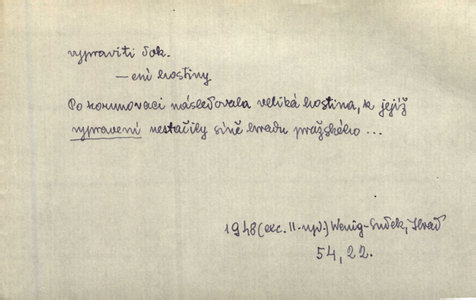 vypraviti dok.
—ení hostiny
Po korunovaci následovala veliká hostina, k jejíž
vypravení nestačily síně hradu pražského ...
1948 (exc. II. vyd.) Wenig-Sudek, Hrad
54, 22.